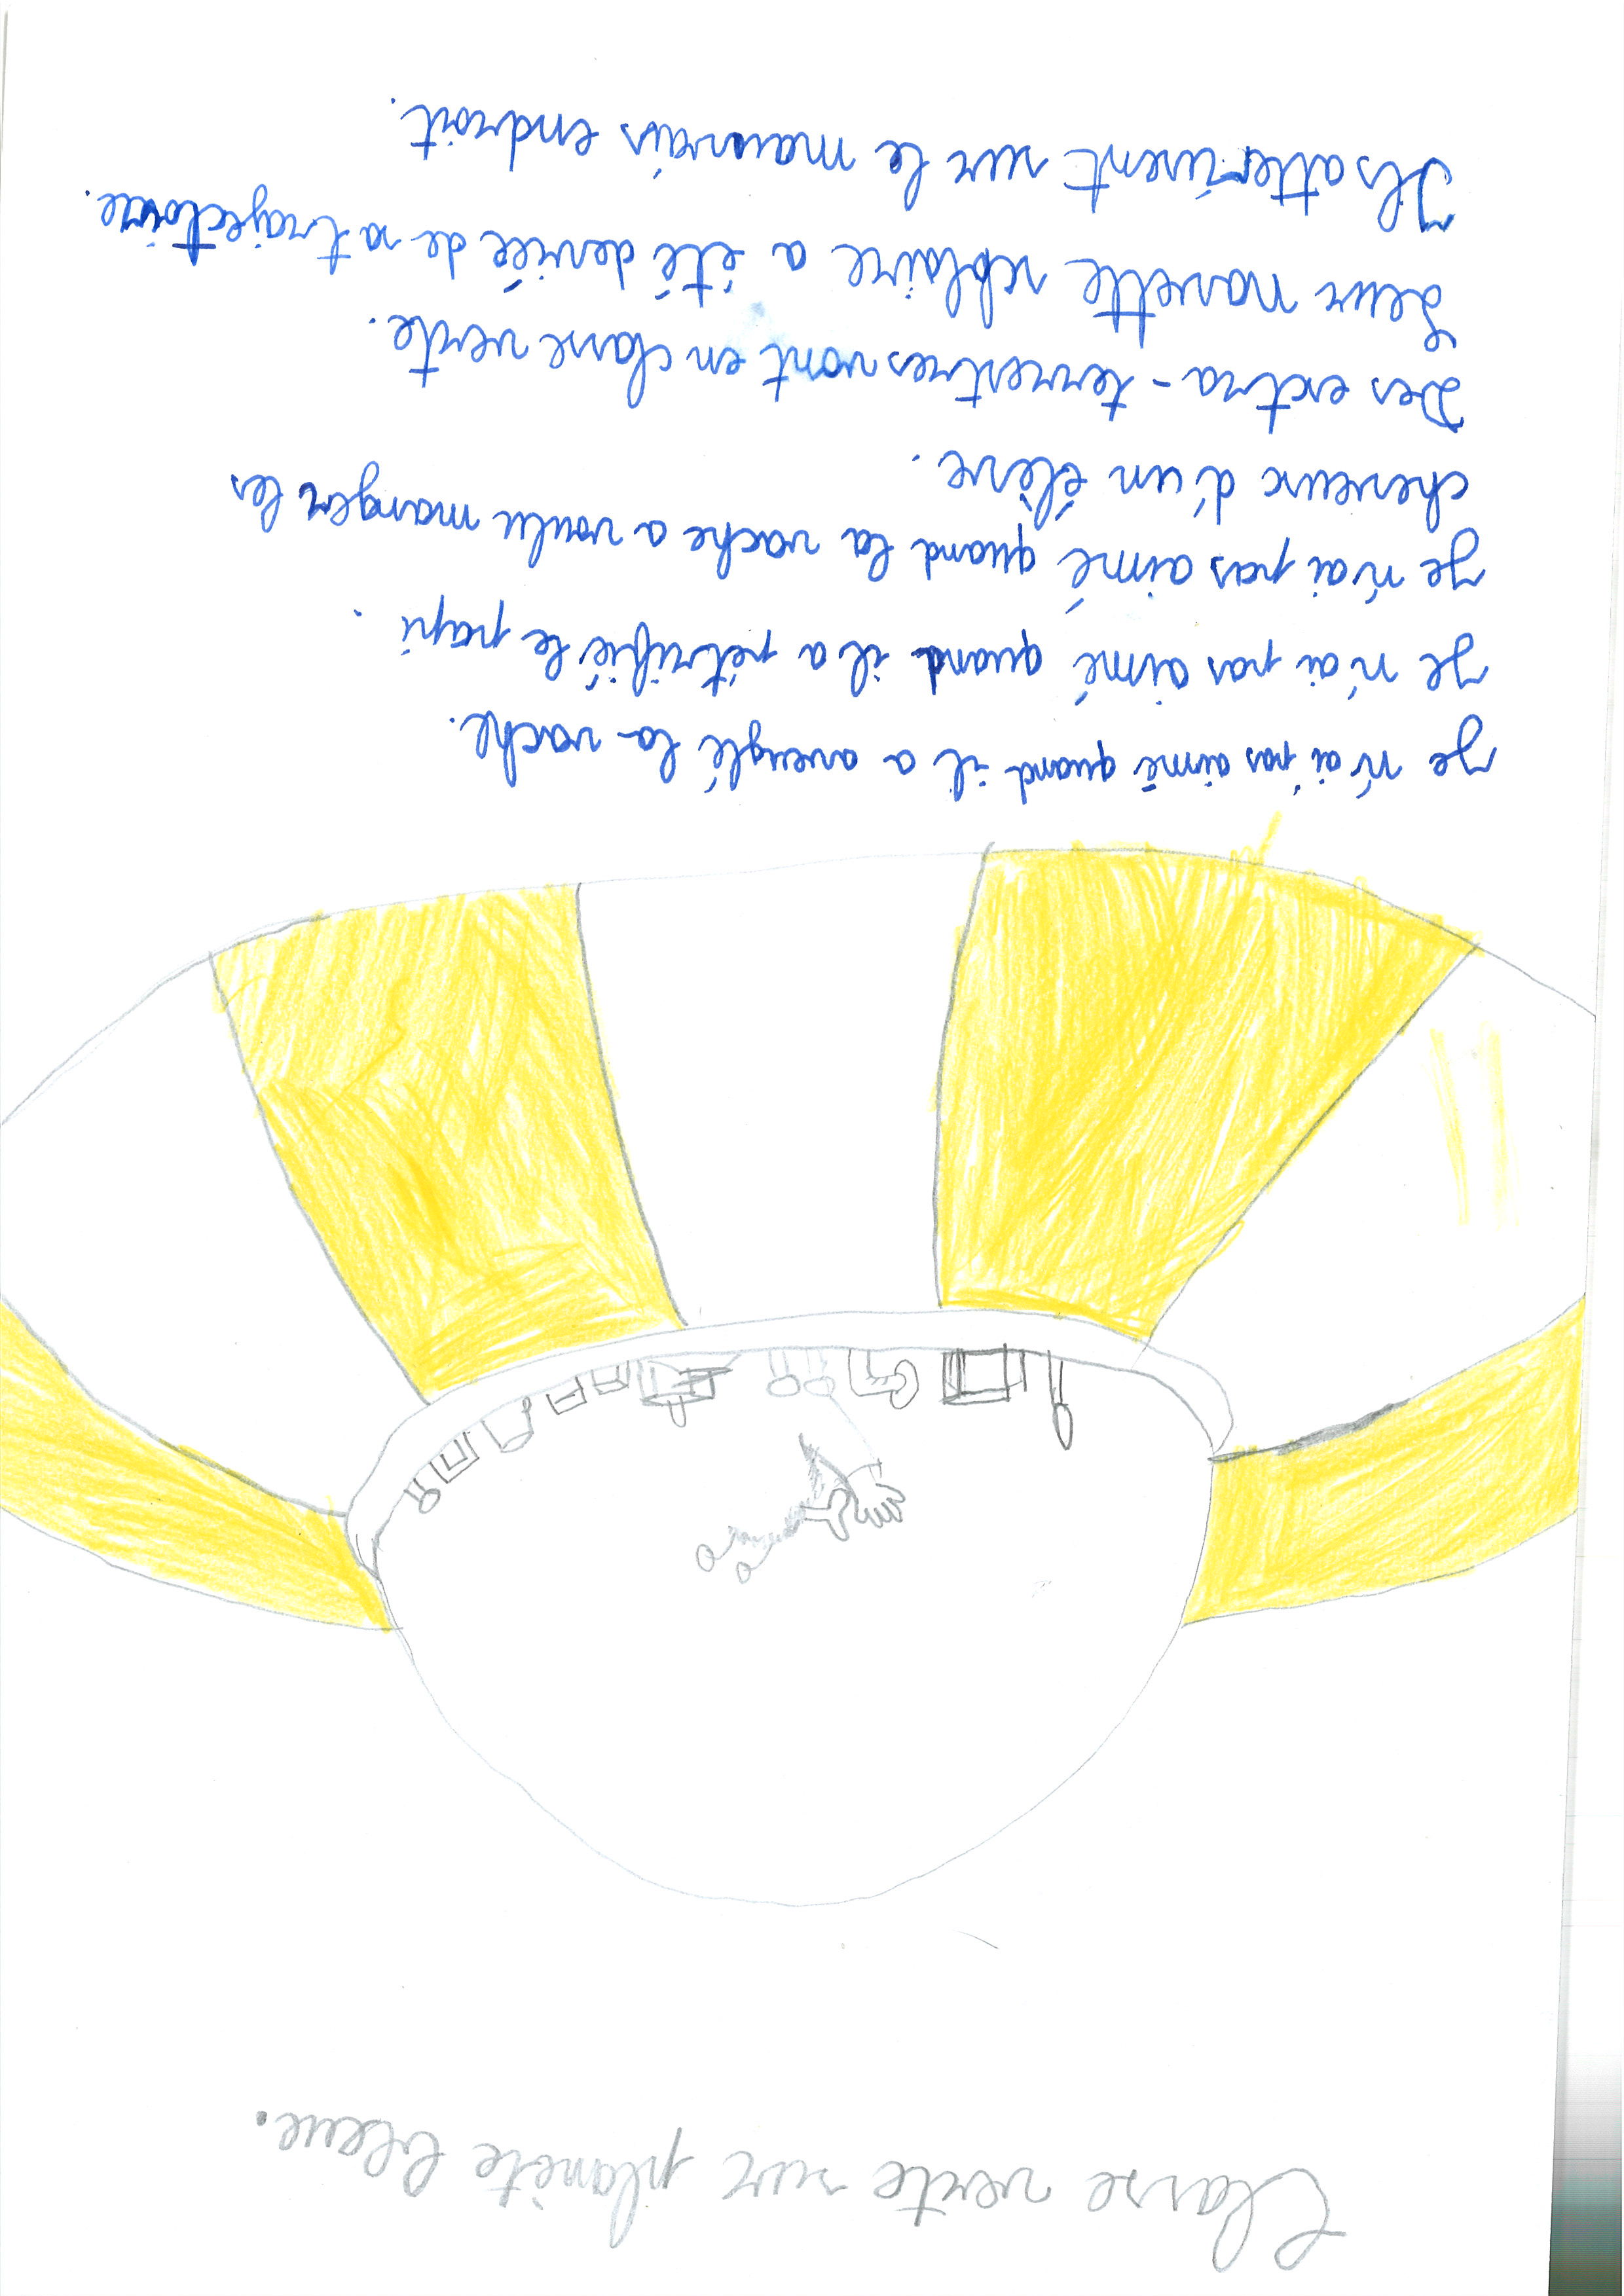 Classe verte sur planète bleue.
Je n'ai pas aimé quand il a aveuglé la vache.
Je n'ai pas aimé quand il a pétrifié le papi.
Je n'ai pas aimé quand la vache a voulu manger les
cheveux d'un élève.
Des extra-terrestres vont en classe verte.
Leur navette scolaire a été deviée de sa trajectoire.
Ils atterisent sur le mauvais endroit.